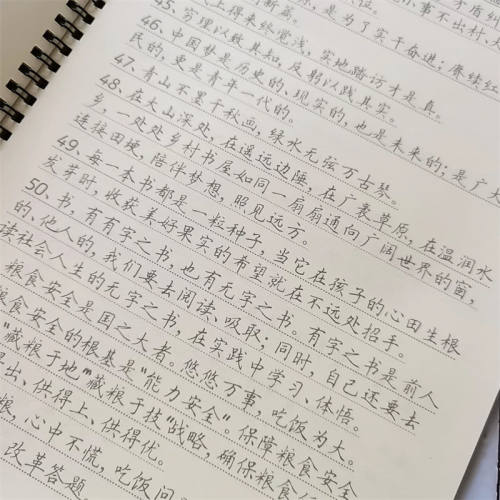 新篇。
事不出村,
是为了实干奋进;赓续红
上得来终觉浅,实地踏访才是真。
45、穷理以致其知,反躬以践其实。
46、中国梦是历史的、现实的,也是未来的;是广大
民的,更是青年一代的。
47、青山不墨千秋画,绿水无弦万古琴。
48、在大山深处,在遥远边陲,在广袤草原,在温润水
乡,一处处乡村书屋如同一扇扇通向广阔世界的窗,
连接田埂,陪伴梦想,照见远方。
49、每一本书都是一粒种子,当它在孩子的心田生根
发芽时,收获美好果实的希望就在不远处招手。
50、书,有有字之书,也有无字之书。有字之书是前人
的、他人的,我们要去阅读、吸取;同时,自己还要去
读社会人生的无字之书,在实践中学习、体悟。
粮食安全是国之大者。悠悠万事,吃饭为大。
粮食安全的根基是"能力安全"。保障粮食安全
"藏粮于地""藏粮于技"战略,确保粮食
出、供得上、供得优。
粮,心中不慌,吃饭问
改革答题。